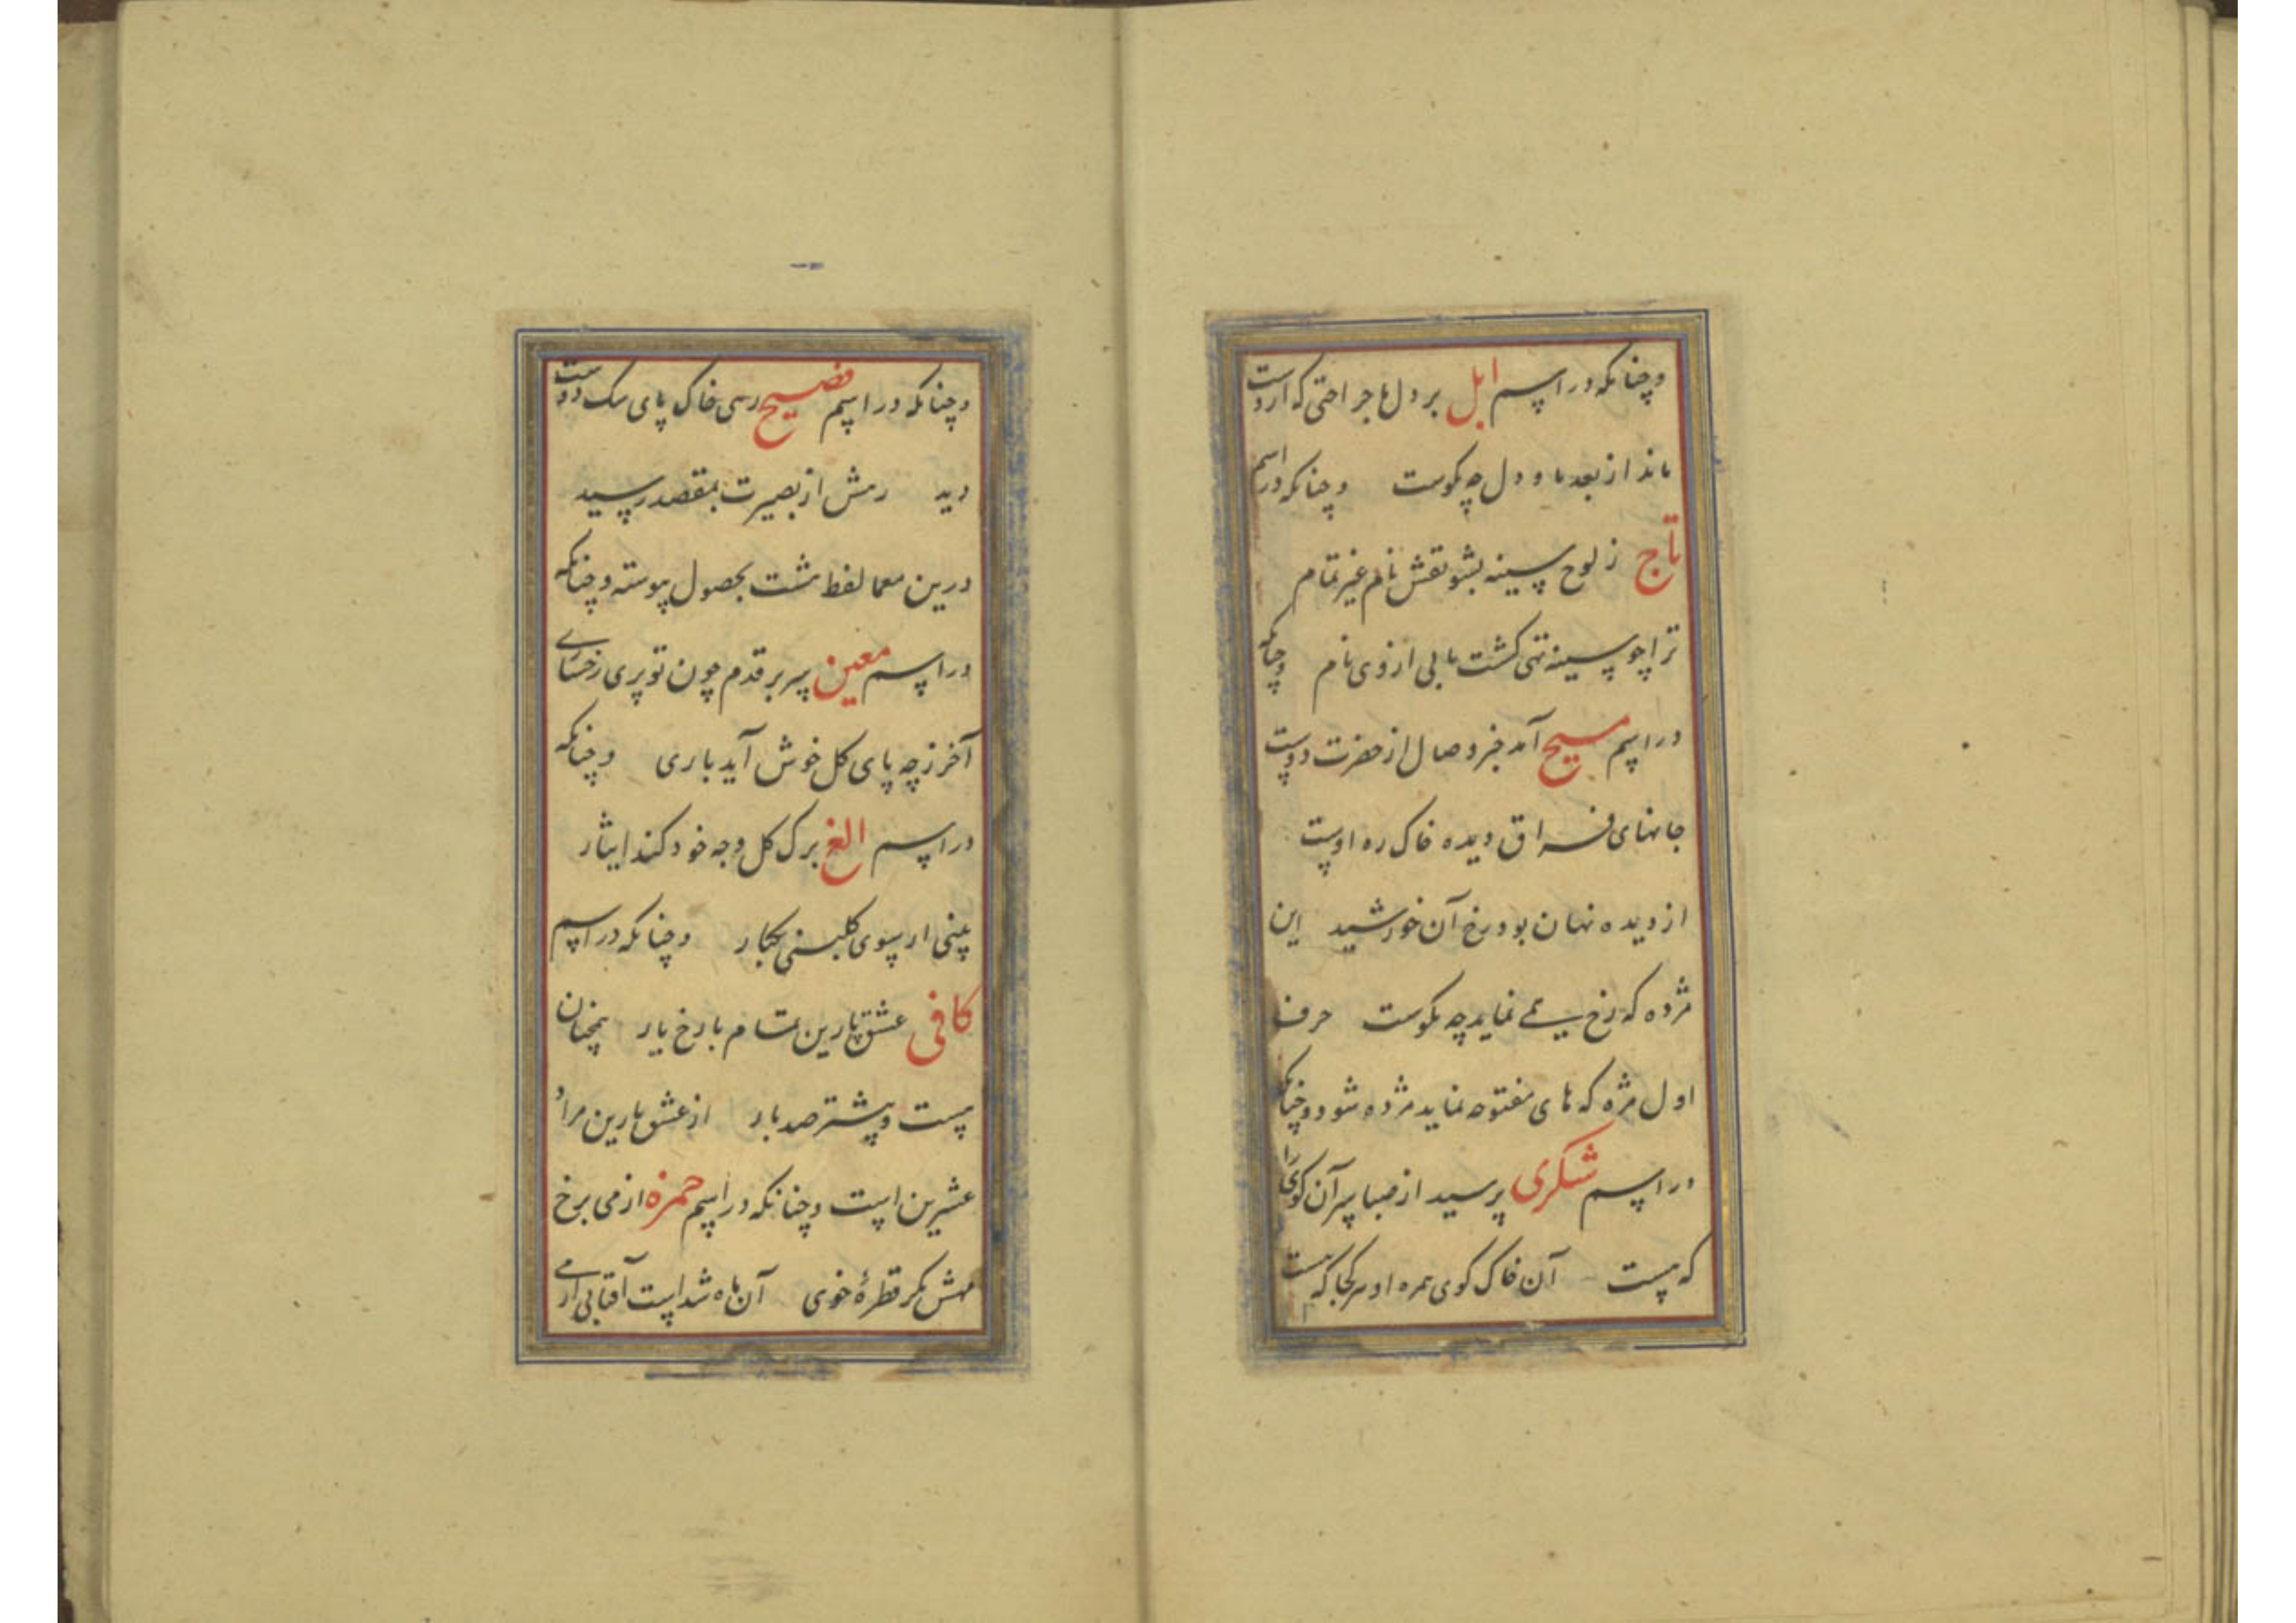 وچنانکه در اسم ابل بر دل ما جراحتی که ازوست
ماند از بعد ما و دل چه نکوست وچنانکه در اسم
تاج ز لوح سینه بشو نقش نام غیر تمام
ترا چو سینه تهی کشت یابی از وی نام وچنانکه
در اسم مسیح آمد خبر وصال از حضرت دوست
جانهای فراق دیده خاک ره اوست
از دیده نهان بود رخ آن خورشید این
مژده که رخ نماید چه نکوست حرف
اول مژه که های مفتوحه نماید مژده شود وچنانکه
در اسم شکری پرسید از صبا سر آن کوی را
که هست آن خاک کوی همره او هر کجا که هست
وچنانکه در اسم فصیح رمی خاک پای سک دوست
دید رمش از بصیرت بمقصد رسید
درین معما لفظ شت بحصول پیوسته وچنانکه
در اسم معین سر بر قدم چون تو پری رخساری
آخر ز چه پای کل خوش آید باری وچنانکه
در اسم الغ برک کل وجه خود کند ایثار
بینی ار سوی کلبنی یکبار وچنانکه در اسم
کافی عشق پارین تمام با رخ یار همچنان
هست و بیشتر صد بار از عشق پارین مراد
عشرین است وچنانکه در اسم حمزه از می برخ
مهش نکر قطرهٔ خوی آن ماه شداست آفتابی آری